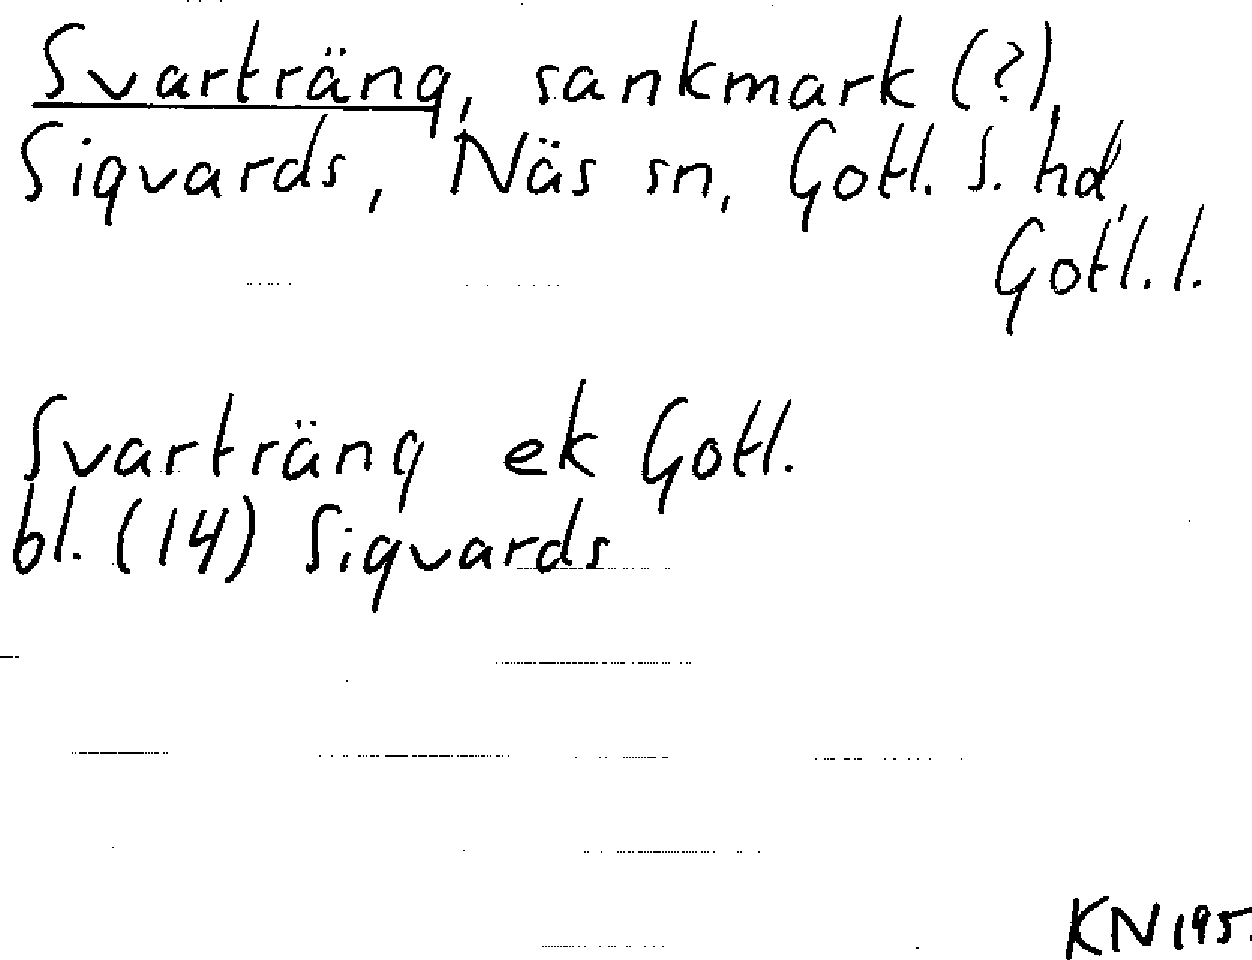 Svarträng, sankmark (?),
Sigvards, Näs sn, Gotl. S. hd,
Gotl. l.
Svarträng ek Gotl.
bl. (14) Sigvards
KN 195.